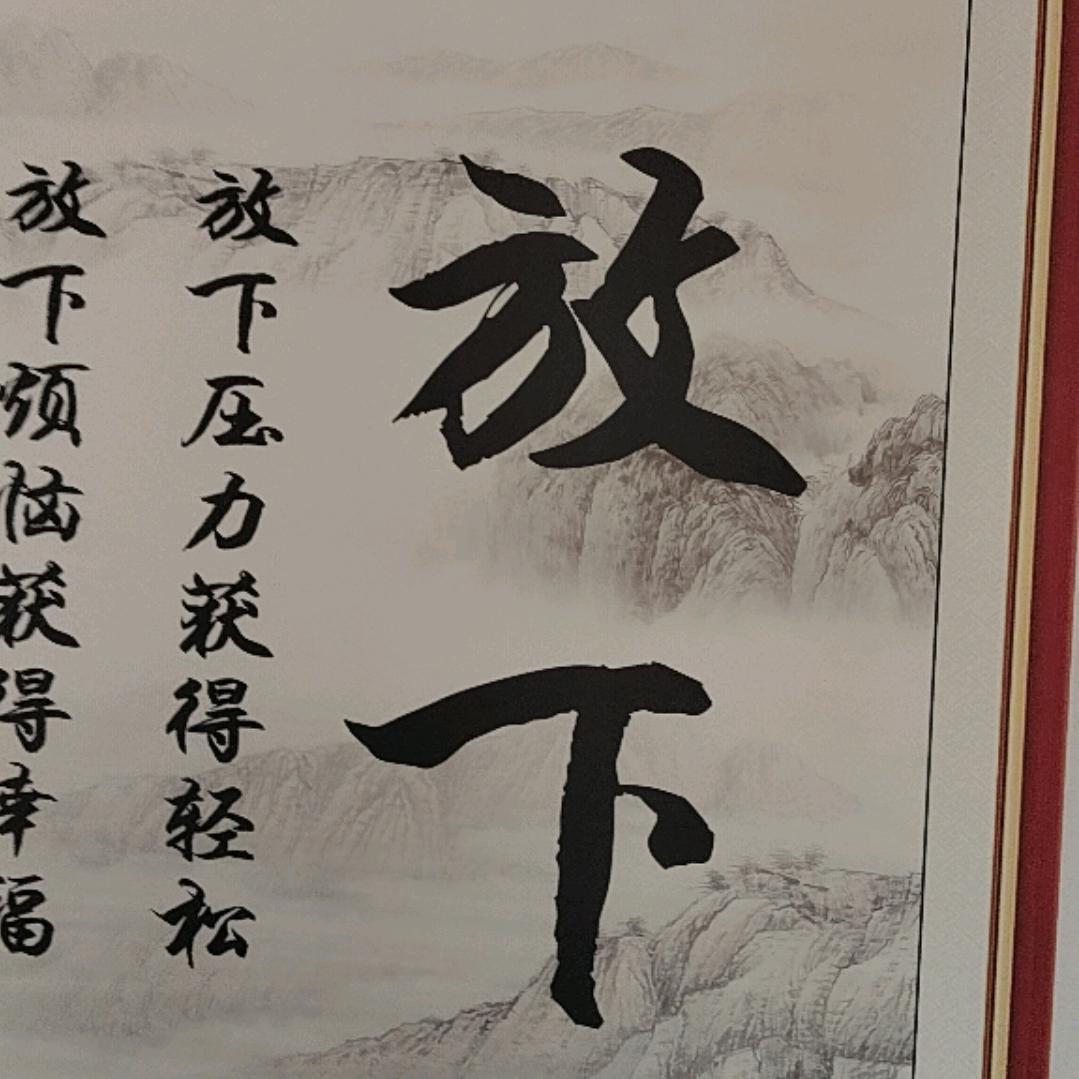 放下
放下压力获得轻松
放下烦恼获得幸福